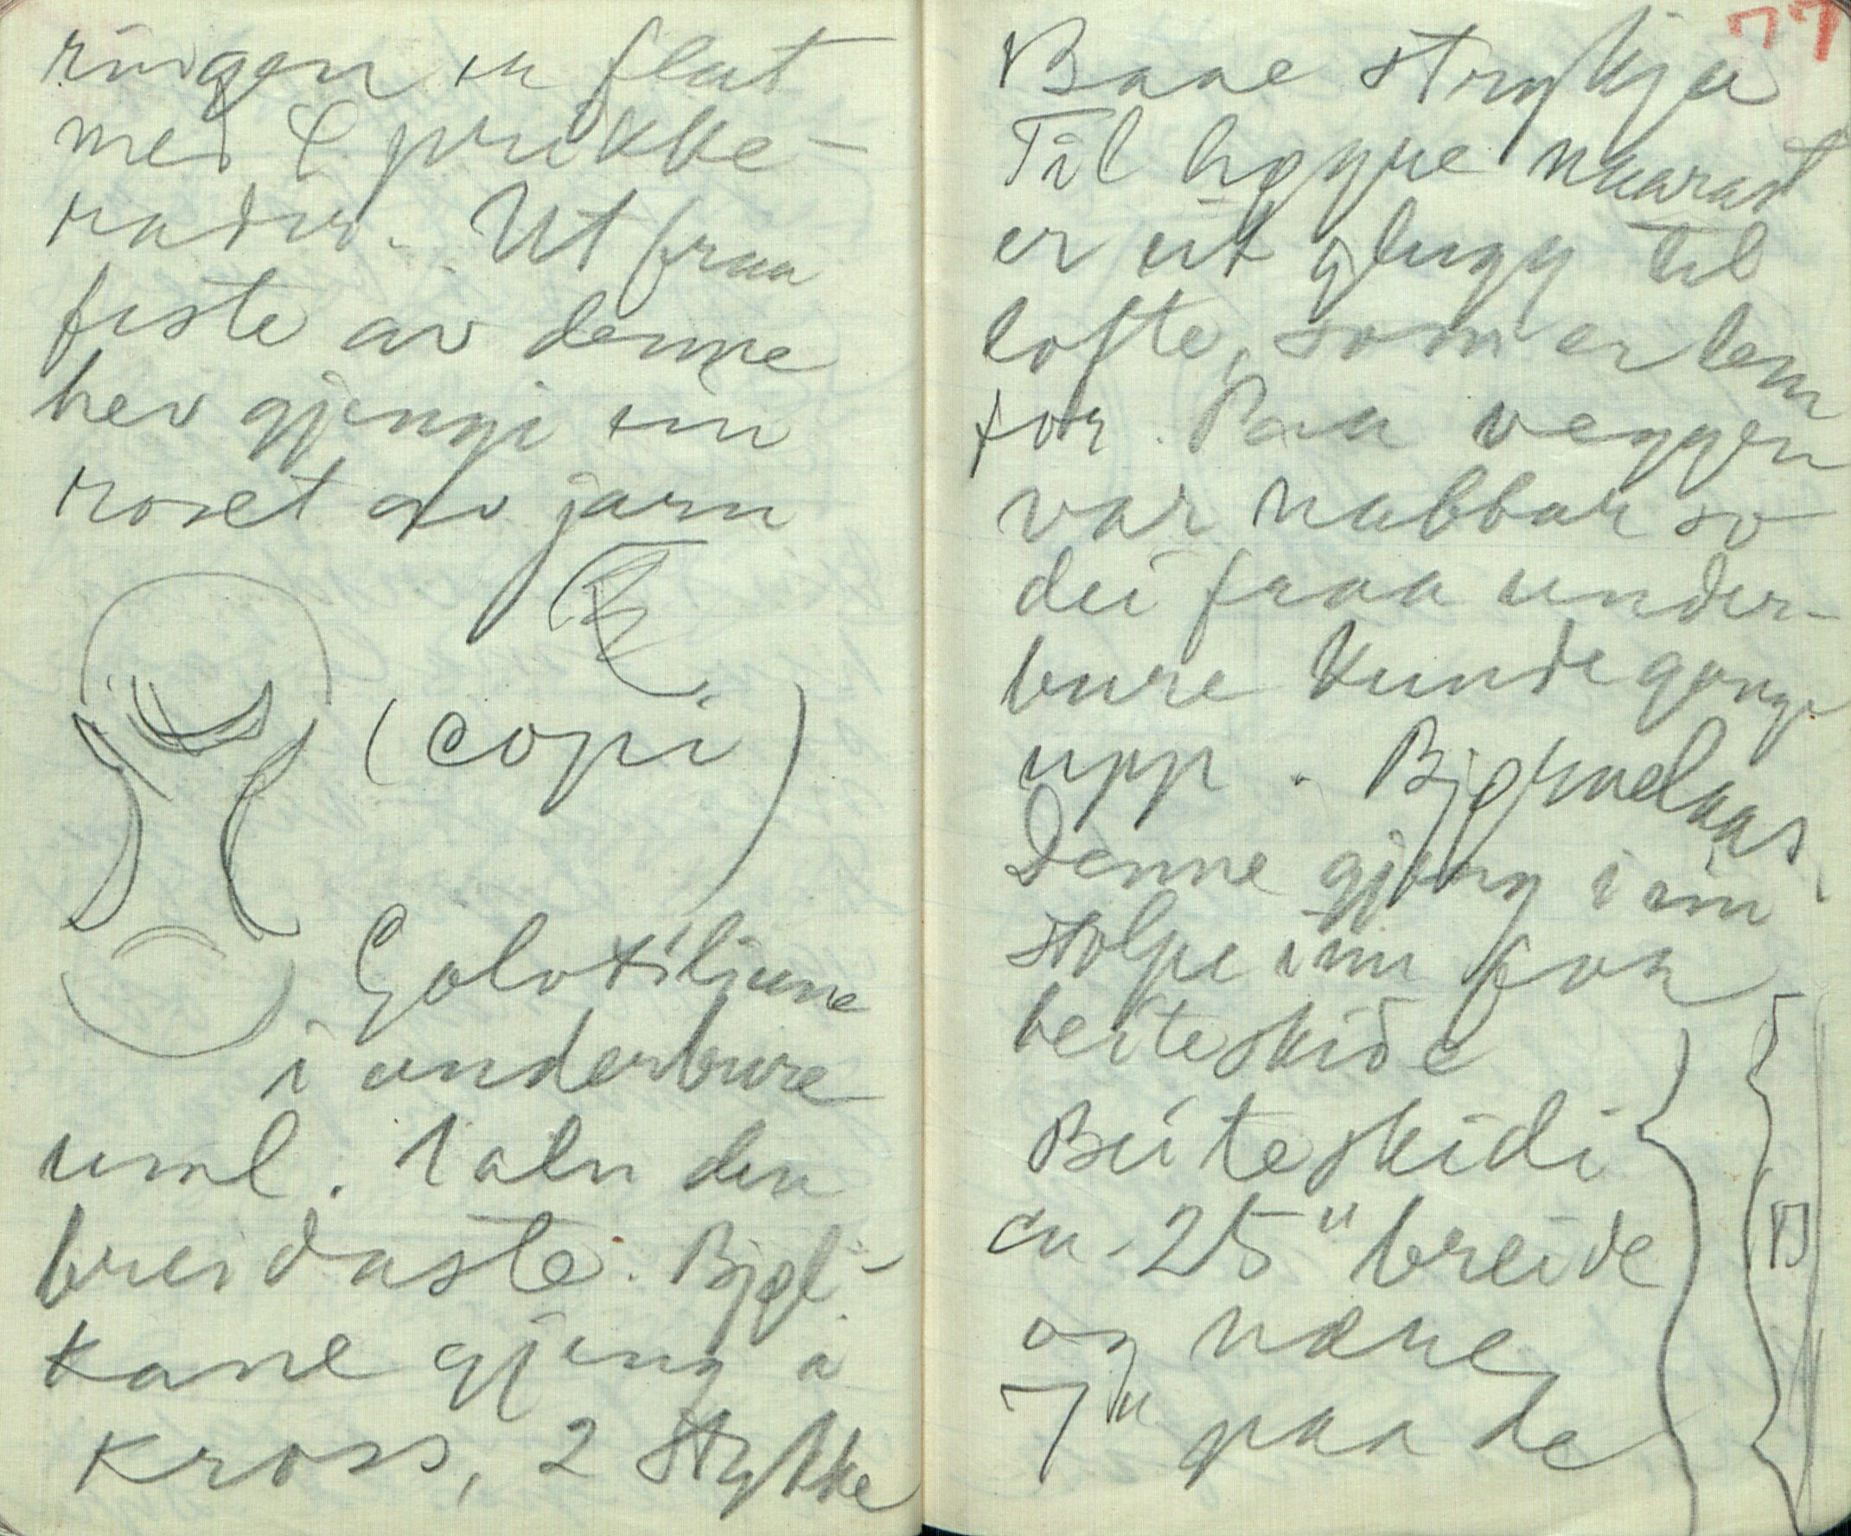 ringen er flat
med 4 prikke-
rader. Ut fraa
feste av denne
hev gjengi ein
roset av jarn
(copi)
Golvtiljune
i underbure
uml. 1 aln den
breidaste. Bjel-
kane gjeng i
kross, 2 stykke
77
Baae strykja
Til høgre naar ad
er eit glugg til
lofte, som er lem
for. Paa veggen
var nabbar so
dei fraa under-
bure kunde gange
upp. Bjørnelaas.
Denne gjeng i ein
stolpe inn for
beiteskide
Beiteskidi
ca. 25" breide
og nære
7" paa de
B